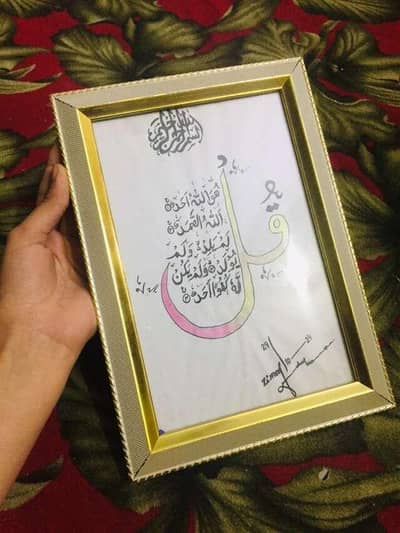 بسم الله الرحمن الرحيم
قل
هُوَ اللهُ اَحَدٌ
اَللهُ الصَّمَدُ
لَمْ يَلِدْ وَلَمْ
يُوْلَدْ وَلَمْ يَكُنْ
لَّهٗ كُفُوًا اَحَدٌ